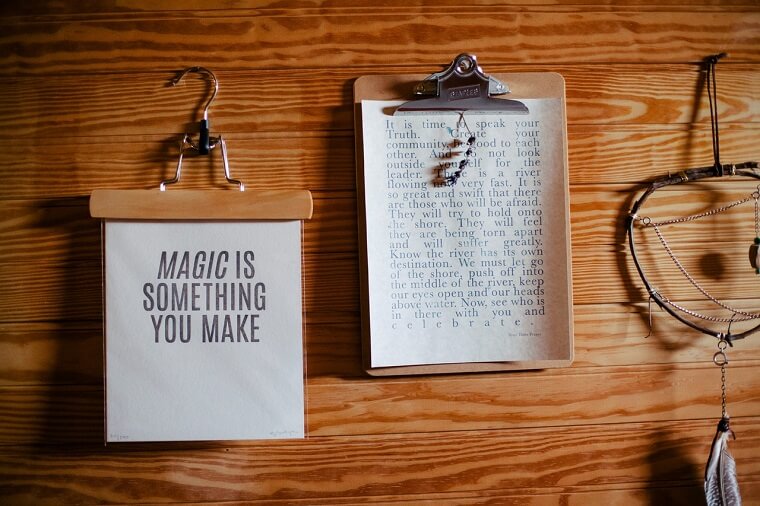 MAGIC IS
SOMETHING
YOU MAKE
It is time to speak your
Truth. Create your
community, be good to each
other. And do not look
outside yourself for the
leader. There is a river
flowing very fast. It is
so great and swift that there
are those who will be afraid.
They will try to hold onto
the shore. They will feel
they are being torn apart
and will suffer greatly.
Know the river has its own
destination. We must let go
of the shore, push off into
the middle of the river, keep
our eyes open and our heads
above water. Now, see who is
in there with you and
celebrate.